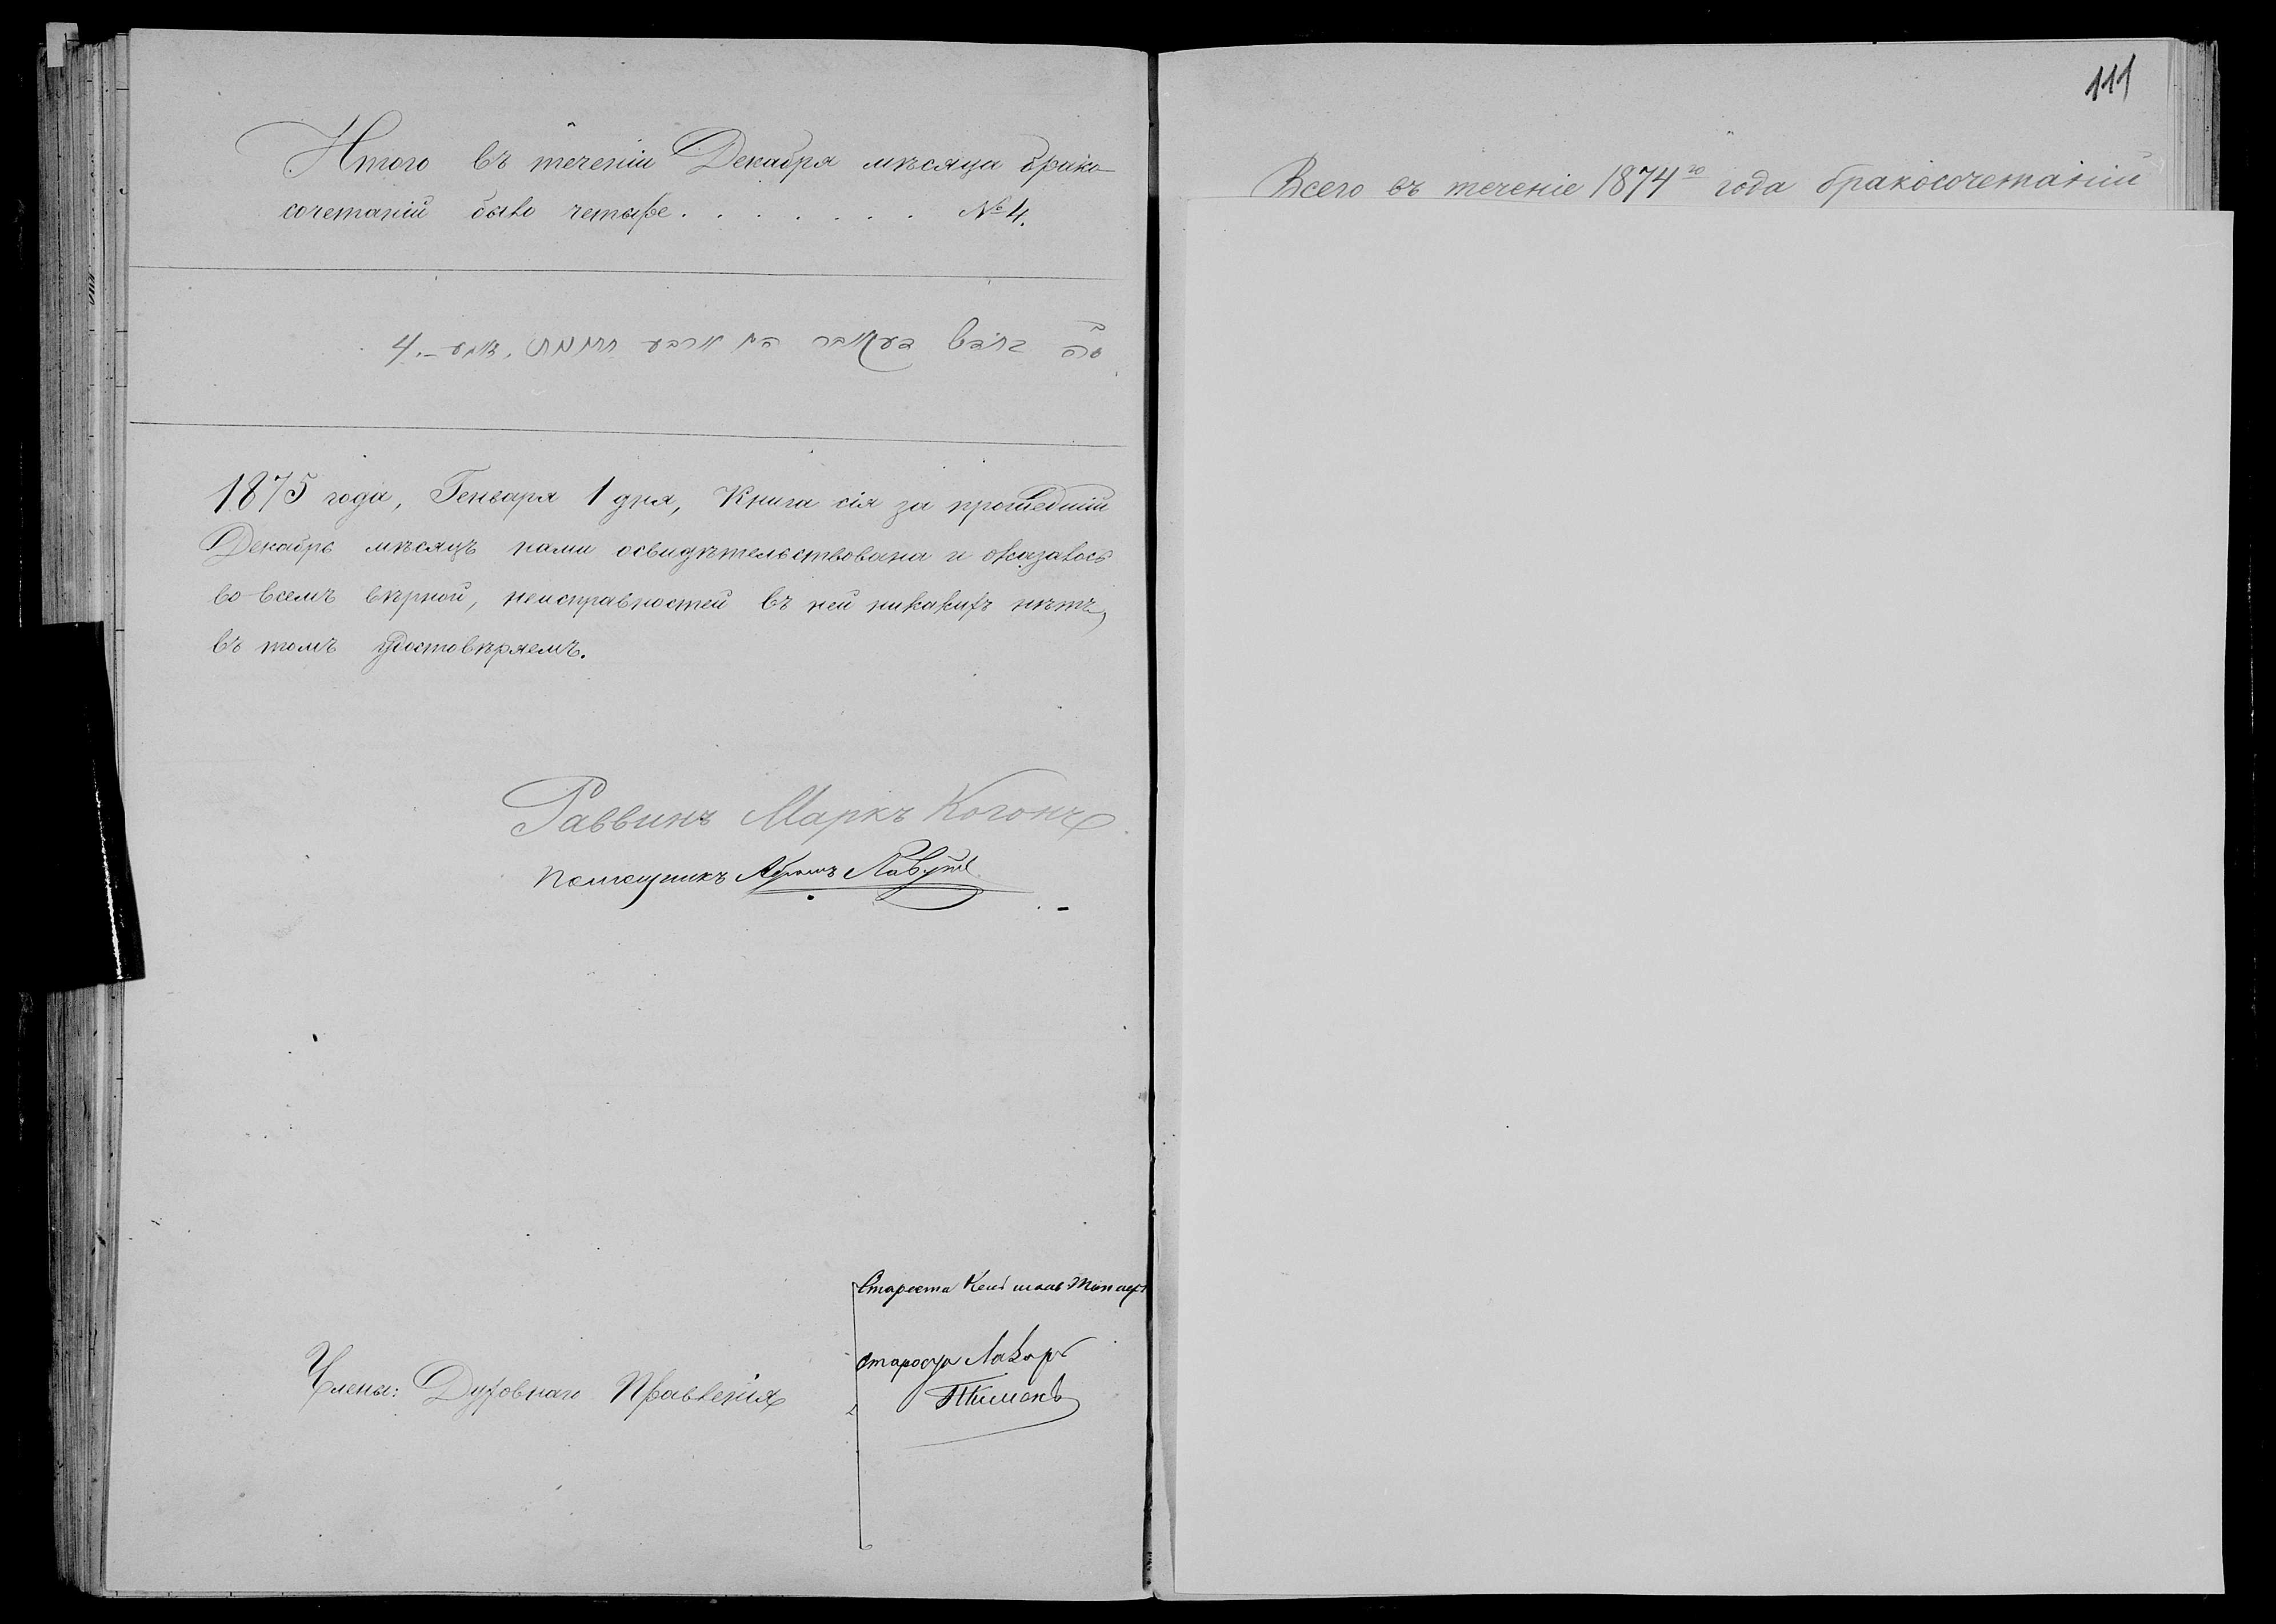 Итого въ теченіи Декабря мѣсяца брако-
сочетаній было четыре . . . . . . . № 4.
4
1875 года, Генваря 1 дня, Книга сія за прошедшій
Декабрь мѣсяцъ нами освидѣтельствована и оказалось
во всемъ вѣрной, неисправностей въ ней никакихъ нѣтъ,
въ томъ удостовѣряемъ.
Раввинъ Маркъ Когонъ
помощникъ Абрамъ
Староста
Староста
Члены: Духовнаго Правленія
111
Всего въ теченіе 1874го года бракосочетаній